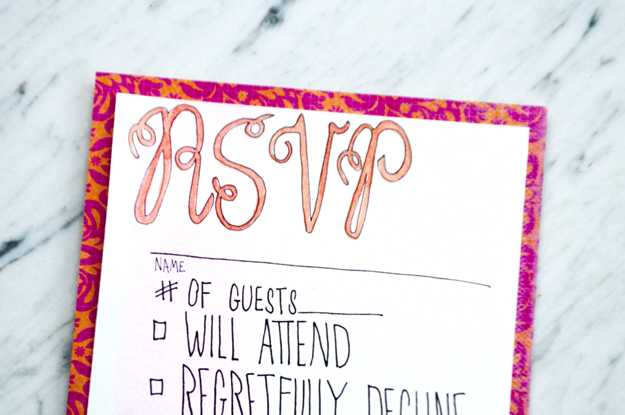 RSVP
NAME
# OF GUESTS
WILL ATTEND
REGRETFULLY DECLINE